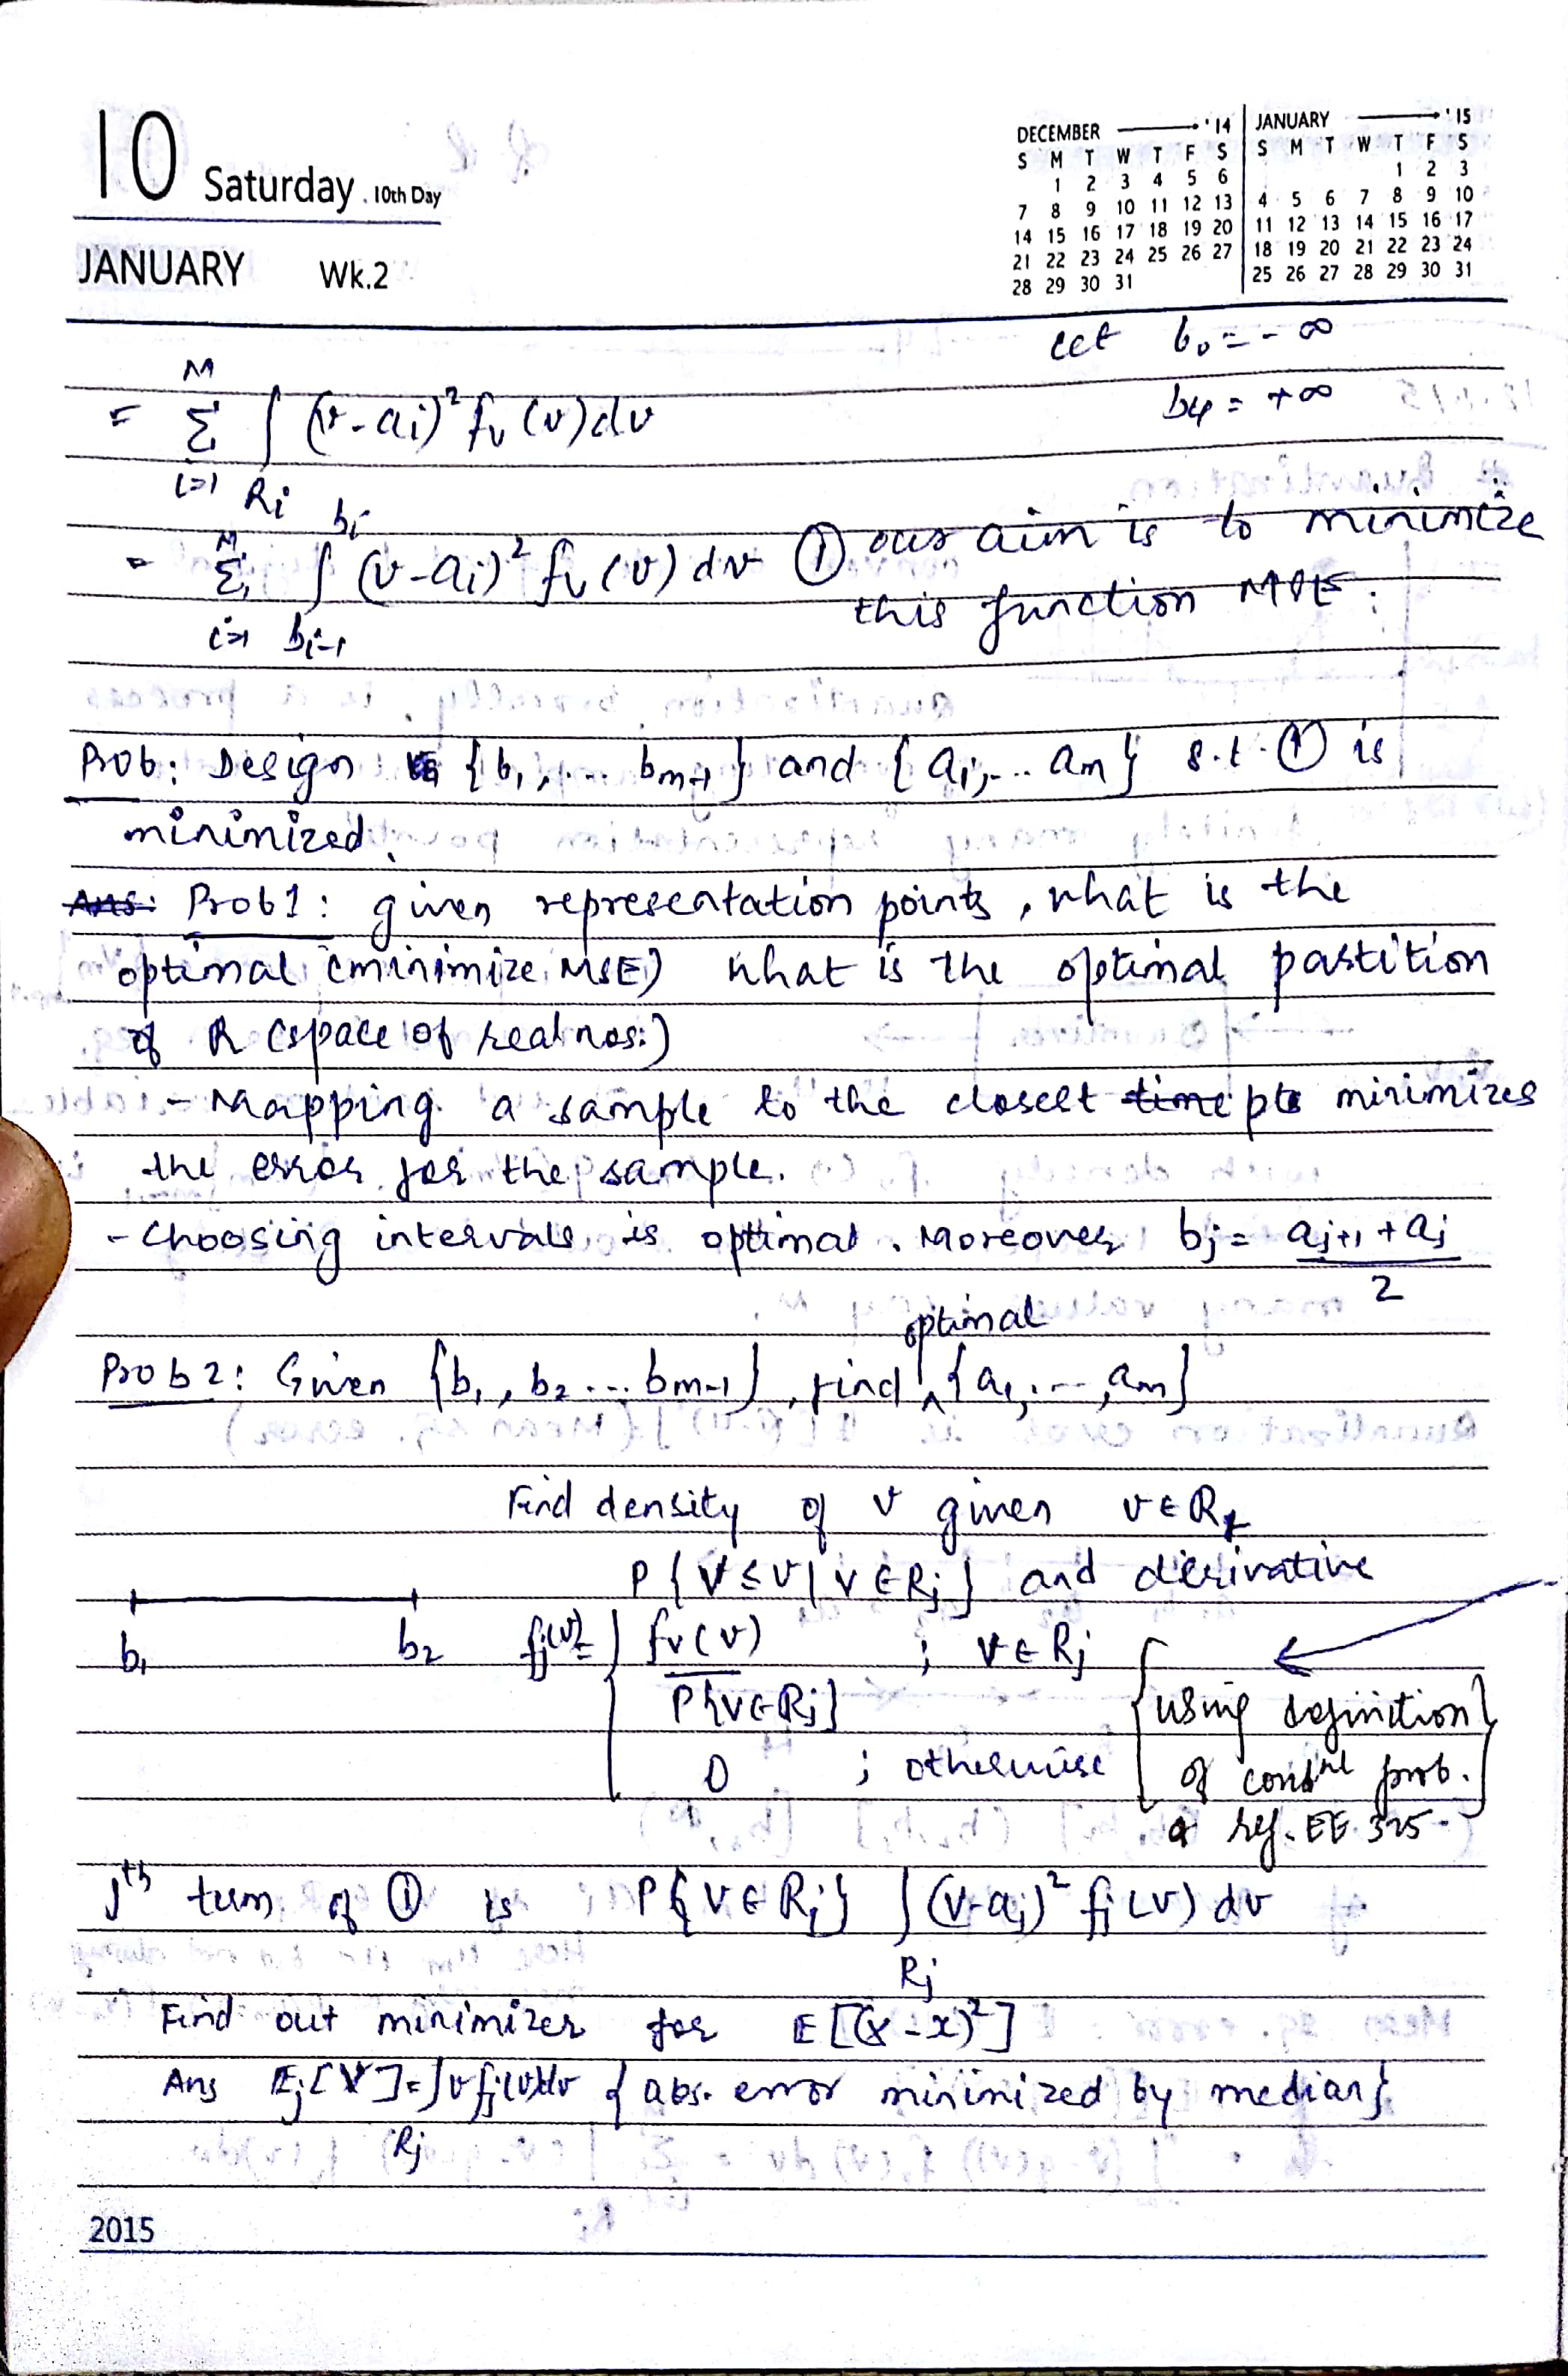 10 Saturday. 10th Day
JANUARY Wk.2
DECEMBER '14
S M T W T F S
1 2 3 4 5 6
7 8 9 10 11 12 13
14 15 16 17 18 19 20
21 22 23 24 25 26 27
28 29 30 31
JANUARY '15
S M T W T F S
1 2 3
4 5 6 7 8 9 10
11 12 13 14 15 16 17
18 19 20 21 22 23 24
25 26 27 28 29 30 31
Let b₀ = -∞
= Σ_{i=1}^{M} ∫_{Ri} (v-ai)² fv(v)dv
b4 = +∞
= Σ_{i=1}^{M} ∫_{bi-1}^{bi} (v-ai)² fv(v) dv ① our aim is to minimize
this function
Prob: Design {b₁, .... bm-1} and {a₁,... am} s.t. ① is
minimized.
Ans: Prob 1: given representation points, what is the
optimal (minimize MSE) what is the optimal partition
of R (space of real nos.)
- Mapping a sample to the closest time pts minimizes
the error for the sample.
- Choosing intervals is optimal. Moreover bj = (aj+1 + aj)/2
optimal
Prob 2: Given {b₁, b₂ ... bm-1}, find ^ {a₁, --- , am}
Find density of v given v ∈ Rj
P{V ≤ v | V ∈ Rj} and derivative
b₁ b₂ fj(v) = { fv(v)/P{V∈Rj} ; v ∈ Rj
0 ; otherwise
{using definition
of condnl prob.}
ref. EE 325.
jth term of ① is P{V ∈ Rj} ∫_{Rj} (v-aj)² fj(v) dv
Find out minimizer for E[(X-x)²]
Ans Ej[V] = ∫_{Rj} v fj(v)dv {abs. error minimized by median}
2015